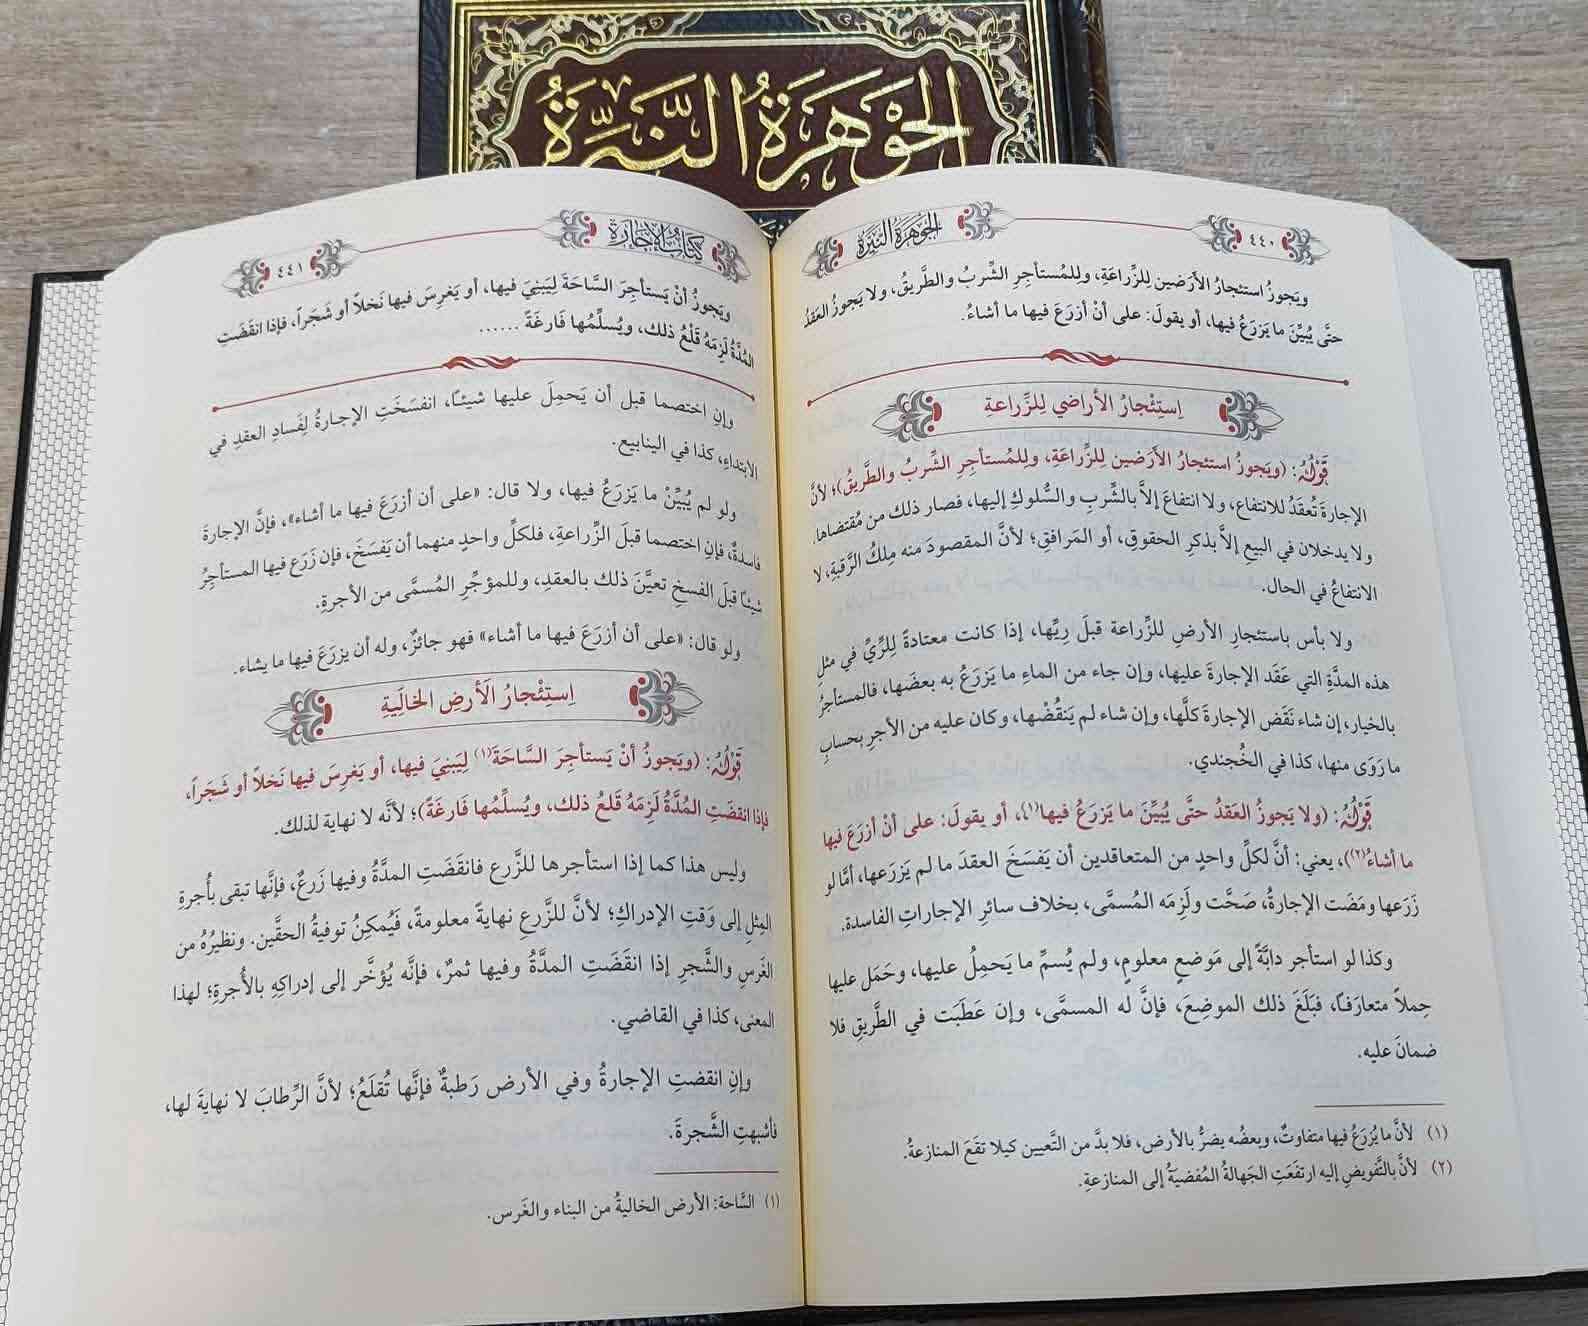 الجَوْهَرَةُ النَّيِّرَةُ
٤٤٠
الجَوْهَرَةُ النَّيِّرَةُ
ويَجوزُ استئجارُ الأرَضين لِلزِّراعَةِ، ولِلمُستأجِرِ الشِّربُ والطَّريقُ، ولا يَجوزُ العَقدُ
حتَّى يُبيِّنَ ما يَزرَعُ فيها، أو يقولَ: على أنْ أزرَعَ فيها ما أشاءُ.
اِستِئْجارُ الأراضي لِلزِّراعةِ
قَوْلُهُ: (ويَجوزُ استئجارُ الأرَضين لِلزِّراعَةِ، ولِلمُستأجِرِ الشِّربُ والطَّريقُ)؛ لأنَّ
الإجارةَ تُعقَدُ للانتفاعِ، ولا انتفاعَ إلاَّ بالشِّربِ والسُّلوكِ إليها، فصار ذلك من مُقتضاها.
ولا يدخلان في البيع إلاَّ بذكرِ الحقوقِ، أو المَرافقِ؛ لأنَّ المقصودَ منه مِلكُ الرَّقبةِ، لا
الانتفاعُ في الحال.
ولا بأس باستئجارِ الأرضِ للزِّراعة قبلَ رِيِّها، إذا كانت معتادةً للرِّيِّ في مثلِ
هذه المدَّةِ التي عَقَد الإجارةَ عليها، وإن جاء من الماءِ ما يَزرَعُ به بعضَها، فالمستأجرُ
بالخيار، إن شاء نَقَض الإجارةَ كلَّها، وإن شاء لم يَنقُضْها، وكان عليه من الأجرِ بحسابِ
ما رَوَى منها، كذا في الخُجندي.
قَوْلُهُ: (ولا يَجوزُ العَقدُ حتَّى يُبيِّنَ ما يَزرَعُ فيها(١)، أو يقولَ: على أنْ أزرَعَ فيها
ما أشاءُ(٢))، يعني: أنَّ لكلِّ واحدٍ من المتعاقدين أن يَفسَخَ العقدَ ما لم يَزرَعها، أمَّا لو
زَرَعها ومَضَت الإجارةُ، صَحَّت ولَزِمه المُسمَّى، بخلاف سائرِ الإجاراتِ الفاسدة.
وكذا لو استأجر دابَّةً إلى مَوضعٍ معلومٍ، ولم يُسمِّ ما يَحمِلُ عليها، وحَمَل عليها
حِملاً متعارَفاً، فبَلَغَ ذلك الموضِعَ، فإنَّ له المسمَّى، وإن عَطَبَت في الطَّريقِ فلا
ضمانَ عليه.
(١) لأنَّ ما يُزرَعُ فيها متفاوتٌ، وبعضُه يضرُّ بالأرض، فلا بدَّ من التَّعيين كيلا تقَعَ المنازعةُ.
(٢) لأنَّ بالتَّفويضِ إليه ارتفَعَتِ الجَهالةُ المُفضيَةُ إلى المنازعةِ.
كِتَابُ الإِجَارَةِ
٤٤١
ويَجوزُ أنْ يَستأجِرَ السَّاحَةَ لِيَبنِيَ فيها، أو يَغرِسَ فيها نَخلاً أو شَجَراً، فإذا انقَضَتِ
المُدَّةُ لَزِمَهُ قَلْعُ ذلك، ويُسلِّمُها فَارِغَةً ......
وإنِ اختصما قبل أن يَحمِلَ عليها شيئًا، انفسَخَتِ الإجارةُ لِفَسادِ العقدِ في
الابتداءِ، كذا في الينابيع.
ولو لم يُبيِّنْ ما يَزرَعُ فيها، ولا قال: «على أن أزرَعَ فيها ما أشاء»، فإنَّ الإجارةَ
فاسدةٌ، فإنِ اختصما قبلَ الزِّراعةِ، فلكلِّ واحدٍ منهما أن يَفسَخَ، فإن زَرَع فيها المستأجِرُ
شيئًا قبلَ الفسخِ تعيَّنَ ذلك بالعقدِ، وللمؤجِّرِ المُسمَّى من الأجرةِ.
ولو قال: «على أن أزرَعَ فيها ما أشاء» فهو جائزٌ، وله أن يزرَعَ فيها ما يشاء.
اِستِئْجارُ الأَرضِ الخالِيَةِ
قَوْلُهُ: (ويَجوزُ أنْ يَستأجِرَ السَّاحَةَ(١) لِيَبنِيَ فيها، أو يَغرِسَ فيها نَخلاً أو شَجَراً،
فإذا انقَضَتِ المُدَّةُ لَزِمَهُ قَلعُ ذلك، ويُسلِّمُها فَارِغَةً)؛ لأنَّه لا نهاية لذلك.
وليس هذا كما إذا استأجرها للزَّرع فانقَضَتِ المدَّةُ وفيها زَرعٌ، فإنَّها تبقى بأُجرةِ
المِثلِ إلى وَقتِ الإدراكِ؛ لأنَّ للزَّرعِ نهايةً معلومةً، فَيُمكِنُ توفيةُ الحقَّين. ونظيرُهُ من
الغَرسِ والشَّجرِ إذا انقَضَتِ المدَّةُ وفيها ثمرٌ، فإنَّه يُؤخَّر إلى إدراكِهِ بالأُجرةِ؛ لهذا
المعنى، كذا في القاضي.
وإنِ انقضتِ الإجارةُ وفي الأرض رَطبةٌ فإنَّها تُقلَعُ؛ لأنَّ الرِّطابَ لا نهايةَ لها،
فأشبهتِ الشَّجرةَ.
(١) السَّاحة: الأرض الخاليةُ من البناء والغَرس.